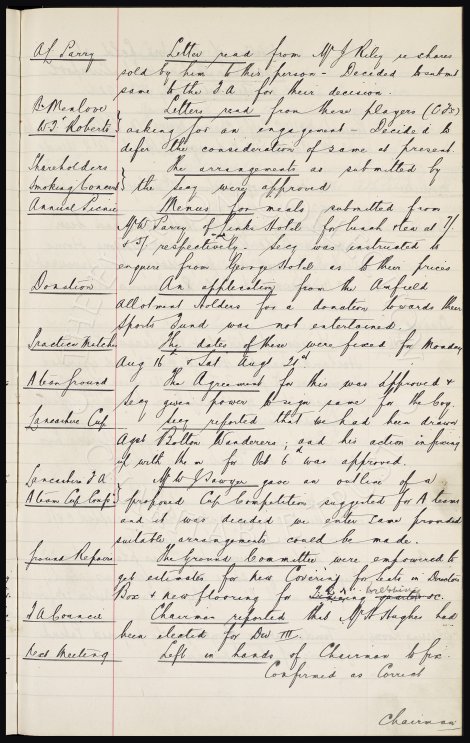 A L Parry Letter read from Mr J Riley re shares
sold by him to this person - Decided to submit
same to the F A for their decision.
Manlove Letters read from these players (C Fs)
W. J. Roberts } asking for an engagement - Decided to
defer the consideration of same at present
Shareholders The arrangements as submitted by
Smoking Concert } the secy were approved
Annual Picnic Menus for meals submitted from
Mr W Parry of Hotel for lunch & tea at
& 3/- respectively. Secy was instructed to
enquire from George Hotel as to their prices
Donation An application from the Anfield
Allotment Holders for a donation towards their
Sports Fund was not entertained.
Practice Matches The dates of these were fixed for Monday
Aug 16th & Sat Augt
A team ground The Agreement for this was approved &
Secy given power to sign same for the Coy.
Lancashire Cup Secy reported that we had been drawn
Agst Bolton Wanderers; and his action in fixing
up with them for Oct 6th was approved.
Lancashire F A Mr W J Sawyer gave an outline of a
A team Cup Comp: } proposed Cup Competition suggested for A teams
and it was decided we enter same provided
suitable arrangements could be made.
Ground Repairs The Ground Committee were empowered to
get estimates for new Covering for seats in Directors
Box & new flooring for &c.
F A Council Chairman reported that Mr H Hughes had
been elected for Div III.
Next Meeting Left in hands of Chairman to fix.
Confirmed as Correct
Chairman